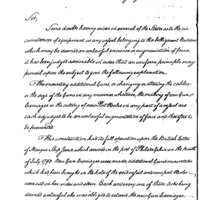 Sir,
Some doubts having arisen in several of the States as to the cir-
cumstances of equipment in any vessel belonging to the belligerent Nations
which may be deemed an unlawful provision or augmentation of force
it has been judged advisable in order that an uniform principle may
prevail upon the subject to give the following explanation.
The mounting additional guns, or changing or altering the calibre
or the size of the guns in any manner whatever, the making of new Gun
carriages or the cutting of new Port Holes in any part of a vessel are
each adjudged to be an unlawful augmentation of force and therefore to
be prevented.
This construction had its full operation upon the British letter
of Marque Ship Jane which armed in the port of Philadelphia in the month
of July 1793. New Gun Carriages were made additional guns mounted
which had been brought in the hold of the vessel
were cut in her sides and stern. Each and every one of these acts being
deemed unlawful she was obliged to unload the new Gun Carriages